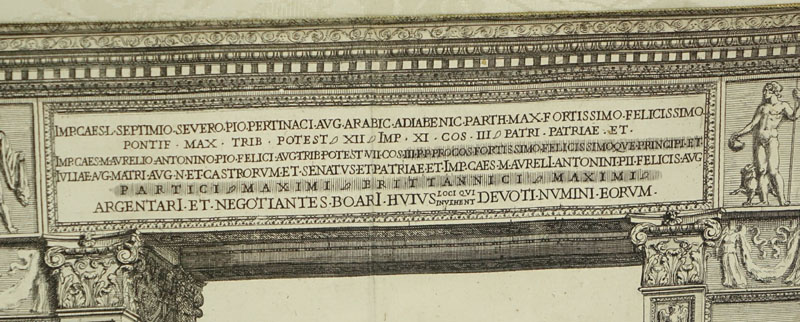 IMP·CAES·L·SEPTIMIO·SEVERO·PIO·PERTINACI·AVG·ARABIC·ADIABENIC·PARTH·MAX·FORTISSIMO·FELICISSIMO
PONTIF · MAX · TRIB · POTEST XII IMP · XI · COS · III PATRI · PATRIAE · ET ·
IMP·CAES·M·AVRELIO·ANTONINO·PIO·FELICI·AVG·TRIB·POTEST·VII·COS·III·P·P·PROCOS·FORTISSIMO·FELICISSIMOQVE·PRINCIPI·ET
IVLIAE·AVG·MATRI·AVG·N·ET·CASTRORVM·ET·SENATVS·ET·PATRIAE·ET·IMP·CAES·M·AVRELI·ANTONINI·PII·FELICIS·AVG
PARTICI MAXIMI BRITTANNICI MAXIMI
ARGENTARI·ET·NEGOTIANTES·BOARI·HVIVS LOCI QVI INVEHENT DEVOTI·NVMINI·EORVM·